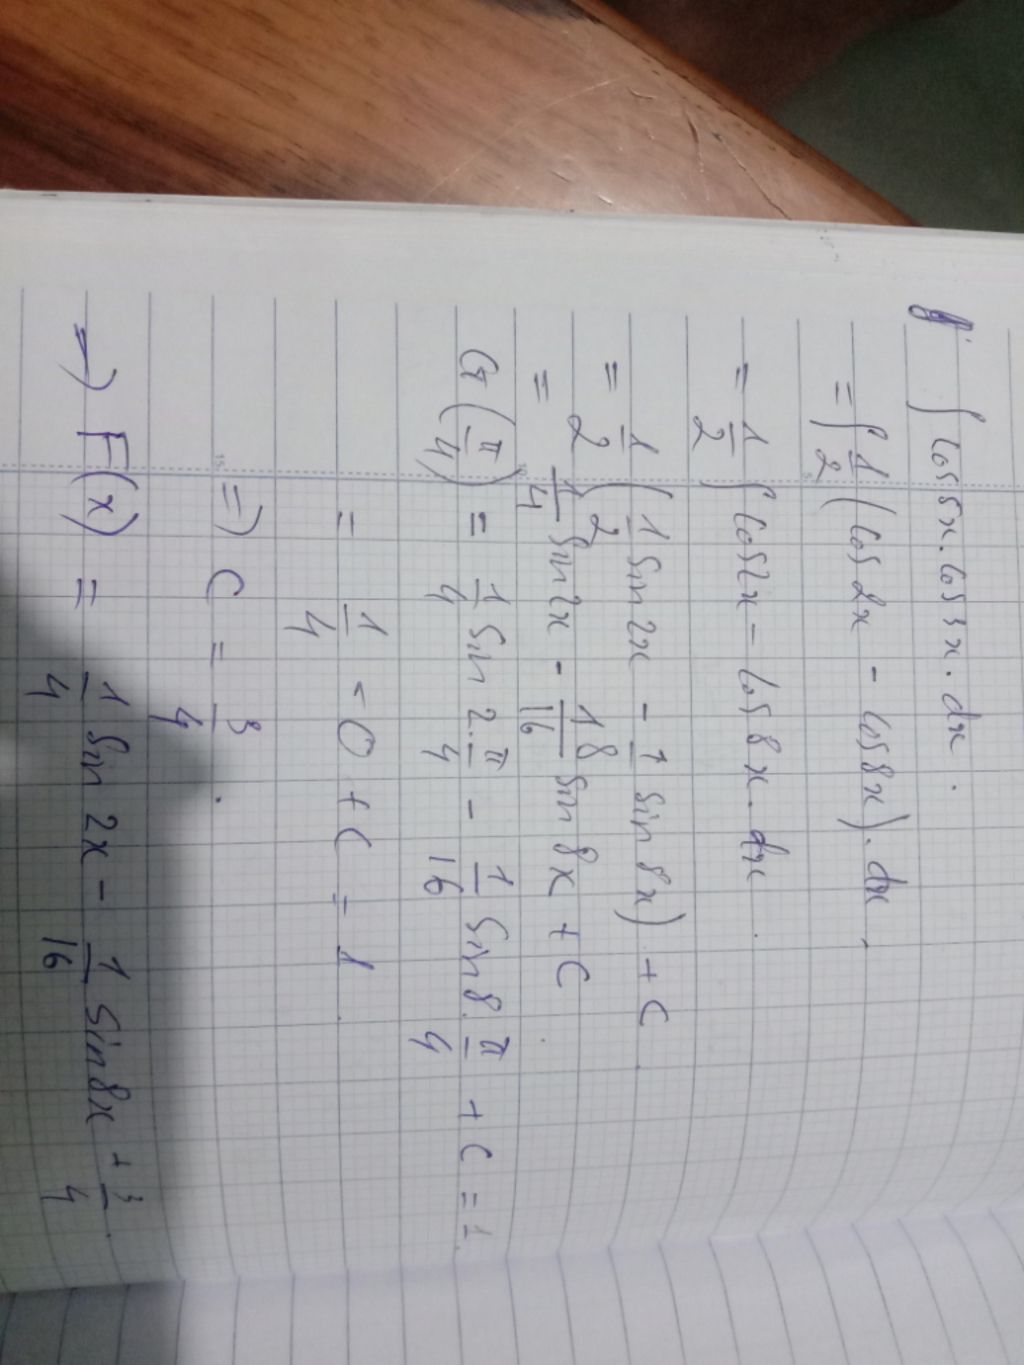 ∫ cos 5x . cos 3x . dx .
= ∫ 1/2 ( cos 2x - cos 8x ) . dx .
= 1/2 ∫ cos 2x - cos 8x . dx .
= 1/2 ( 1/2 sin 2x - 1/8 sin 8x ) + C
= 1/4 sin 2x - 1/16 sin 8x + C .
G ( π/4 ) = 1/4 sin 2 . π/4 - 1/16 sin 8 . π/4 + C = 1 .
= 1/4 - 0 + C = 1 .
=> C = 3/4 .
=> F(x) = 1/4 sin 2x - 1/16 sin 8x + 3/4 .